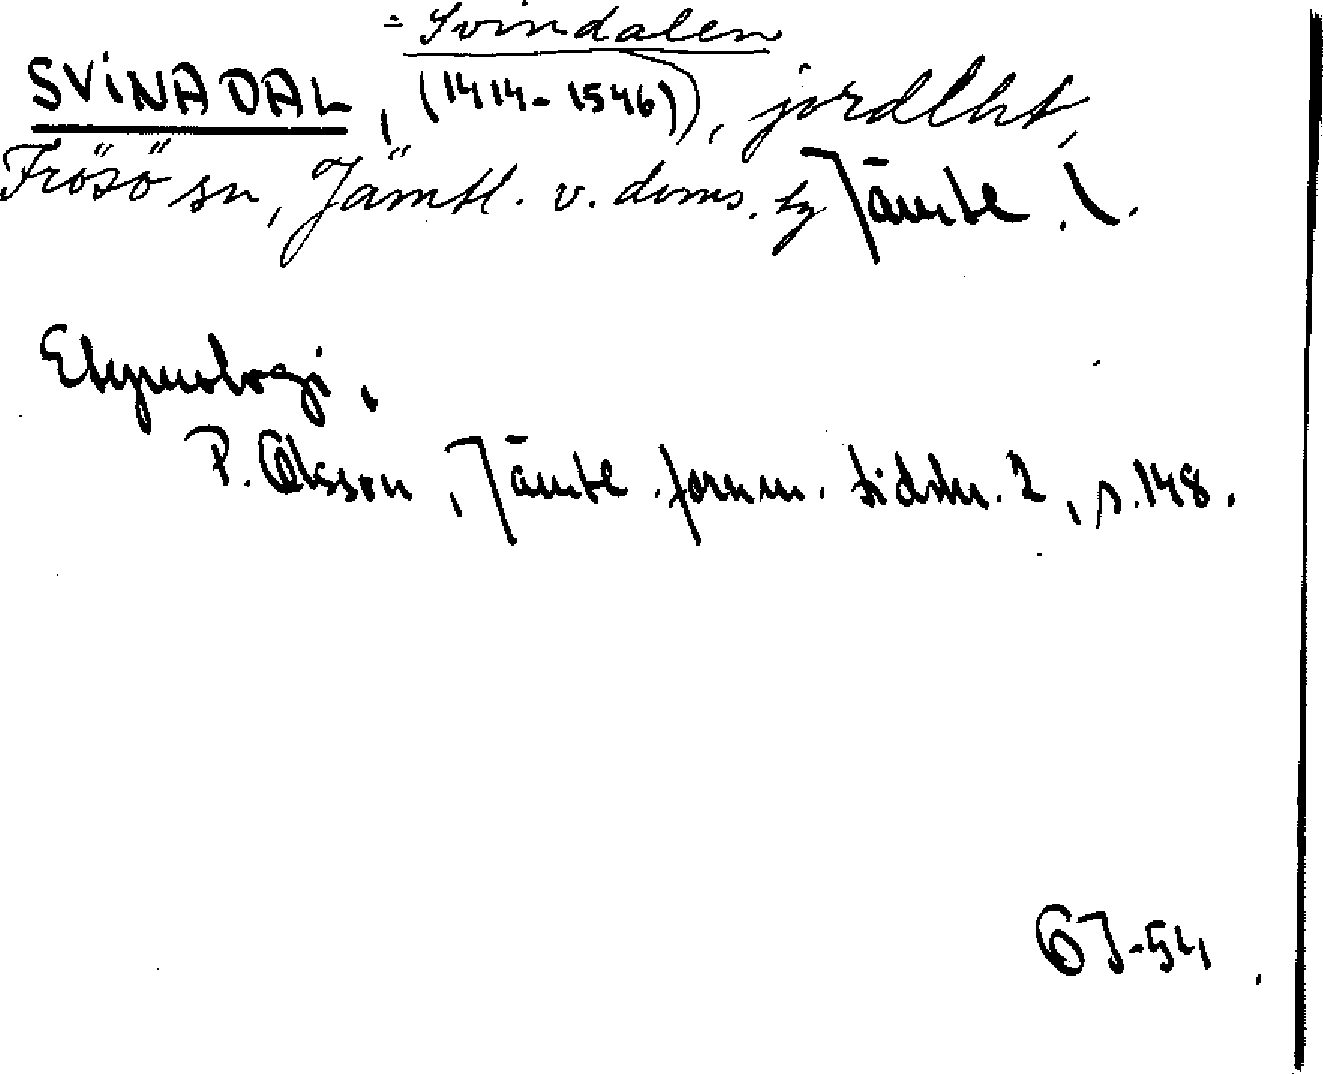 = Svindalen
SVINADAL, (1414-1546), jordlht,
Frösö sn, Jämtl. v. doms. Jämtl. l.
Etymologi,
P. Olsson, Jämtl. fornm. tidskr. 2, s. 148.
GJ-54